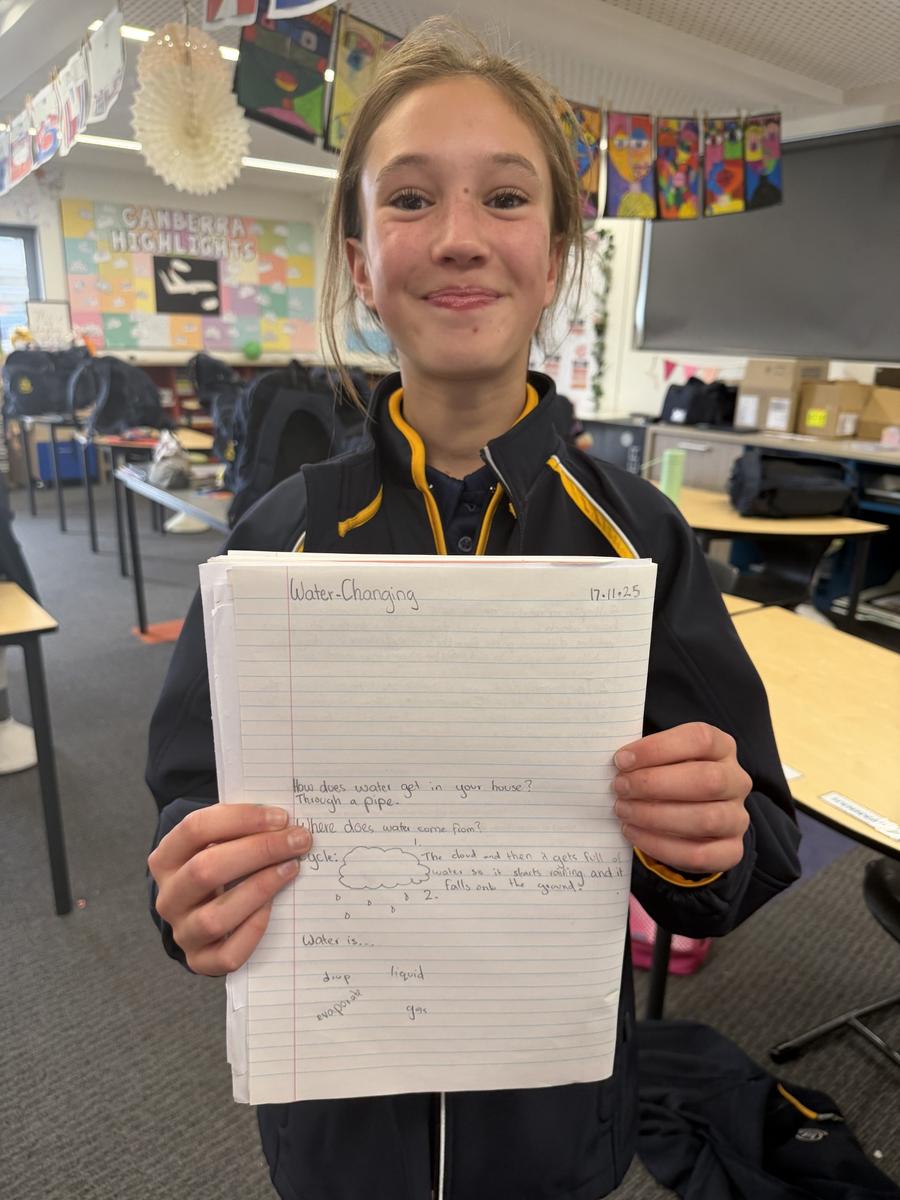 CANBERRA
HIGHLIGHTS
Water-Changing 17.11.25
How does water get in your house?
Through a pipe.
Where does water come from?
cycle: 1
The cloud and then it gets full of
water so it starts raining and it
falls onto the ground.
2.
Water is...
drop liquid
evaporate gas